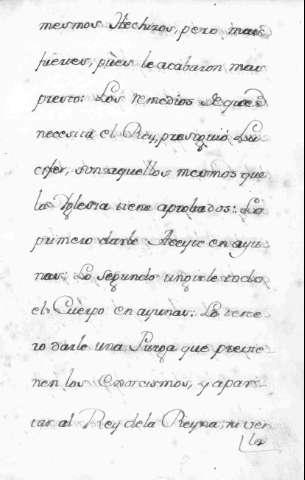 mesmos Hechizos, pero mas
fuertes, pues le acabaron mas
presto: Los remedios de que
necesita el Rey, prosiguió Lu-
cifer, son aquellos mesmos que
la Iglesia tiene aprobados: Lo
primero darle Aceyte en ayu-
nas: Lo segundo ungirle todo
el Cuerpo en ayunas: Lo terce-
ro darle una Purga que previe-
nen los Exorcismos, y apar-
tar al Rey de la Reyna, ni ver-
la